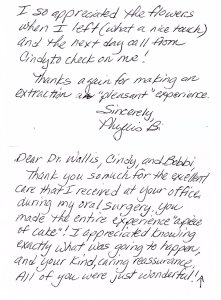 I so appreciated the flowers
when I left (what a nice touch)
and the next day call from
Cindy to check on me!
Thanks again for making an
extraction an "pleasant" experience.
Sincerely,
Phyllis B.
Dear Dr. Wallis, Cindy, and Bobbi
Thank you so much for the excellent
care that I received at your office
during my oral surgery. You
made the entire experience "a piece
of cake"! I appreciated knowing
exactly what was going to happen,
and your kind, caring reassurance.
All of you were just wonderful!!